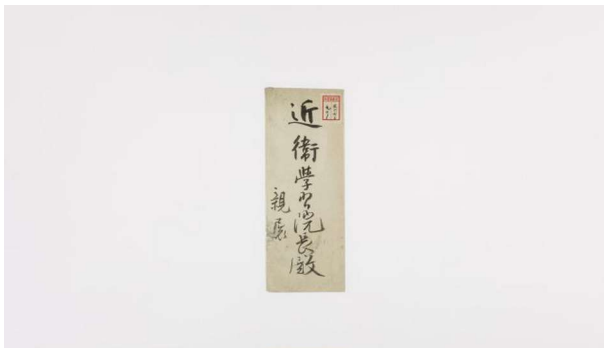 近衛學習院長殿
親展